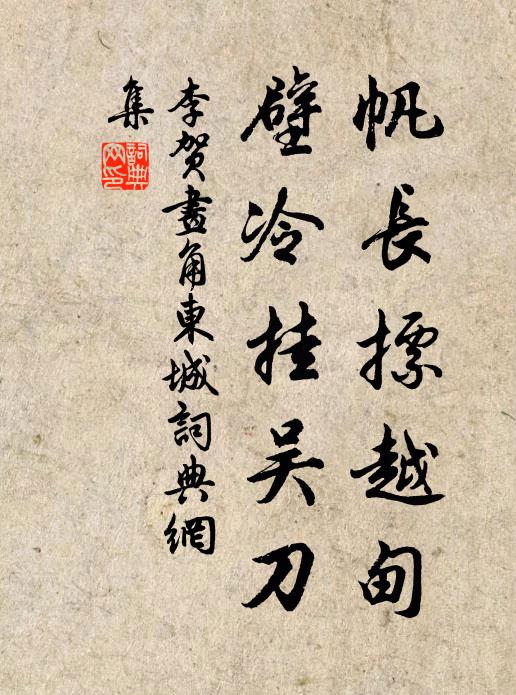 帆長摽越甸
壁冷挂吴刀
李賀畫角東城詞典網
集
詞典
网印